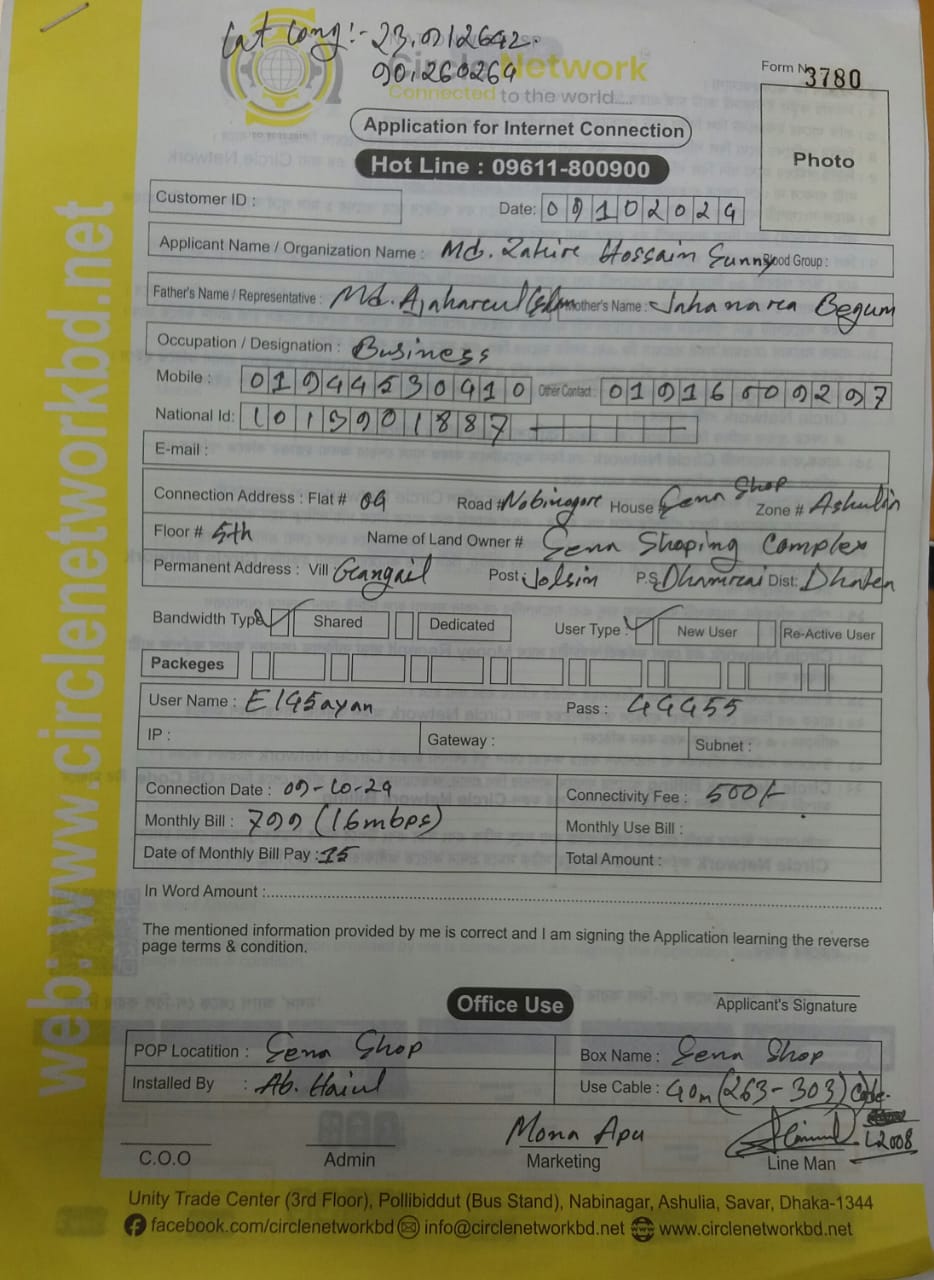 Lat Long:- 23.912642.
90.260264
Circle Network
Connected to the world.....
Form No 3780
Application for Internet Connection
Photo
Hot Line : 09611-800900
Customer ID :
Date: 09102024
Applicant Name / Organization Name : Md. Zahire Hossain Sunny Blood Group :
Father's Name / Representative : Md. Ajaharul Islam Mother's Name : Jahanara Begum
Occupation / Designation : Business
Mobile : 01944530910 Other Contact : 01916609297
National Id: 1015901887
E-mail :
Connection Address : Flat # 04 Road # Nobinogore House Sena Shop Zone # Ashulia
Floor # 5th Name of Land Owner # Sena Shoping Complex
Permanent Address : Vill Gangail Post : Jolsin P.S Dhamrai Dist: Dhaka
Bandwidth Type Shared Dedicated User Type : New User Re-Active User
Packeges
User Name : E145ayan Pass : 44455
IP : Gateway : Subnet :
Connection Date : 09-10-24 Connectivity Fee : 500/-
Monthly Bill : 799 (16mbps) Monthly Use Bill :
Date of Monthly Bill Pay : 15 Total Amount :
In Word Amount :
The mentioned information provided by me is correct and I am signing the Application learning the reverse
page terms & condition.
Office Use
Applicant's Signature
POP Locatition : Sena Shop Box Name : Sena Shop
Installed By : Ab. Use Cable : 40m (263-303)
Mona Apu L2008
C.O.O Admin Marketing Line Man
Unity Trade Center (3rd Floor), Pollibiddut (Bus Stand), Nabinagar, Ashulia, Savar, Dhaka-1344
facebook.com/circlenetworkbd info@circlenetworkbd.net www.circlenetworkbd.net
web: www.circlenetworkbd.net